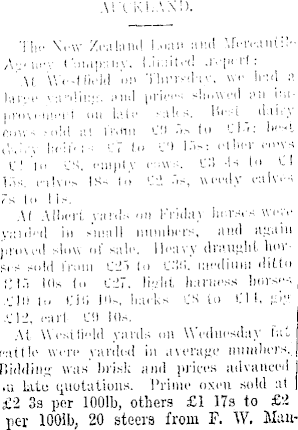 AUCKLAND.
The New Zealand Loan and Mercantile
Agency Company, Limited, report:
At Westfield on Thursday, we had a
large yarding, and prices showed an im-
provement on late sales. Best dairy
cows sold at from £9 5s to £15; best
dairy heifers £7 to £9 15s; other cows
to £8, empty cows, £3 4s to £4
15s, calves 18s to £2 5s, weedy calves
7s to 11s.
At Albert yards on Friday horses were
yarded in small numbers, and again
proved slow of sale. Heavy draught hor-
ses sold from £25 to £36, medium ditto
£15 10s to £27, light harness horses
£10 to £16 10s, hacks £8 to £14, gig
£12, cart £9 10s.
At Westfield yards on Wednesday fat
cattle were yarded in average numbers.
Bidding was brisk and prices advanced
on late quotations. Prime oxen sold at
£2 3s per 100lb, others £1 17s to £2
per 100lb, 20 steers from F. W. Man-